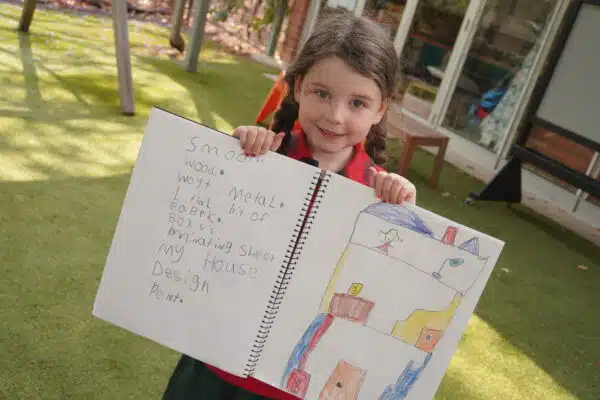 Smooth
wood.
wayt Metal.
Lital bit of
Fabric.
Boxs
Anivating Sheet
My House
Design
Pent.